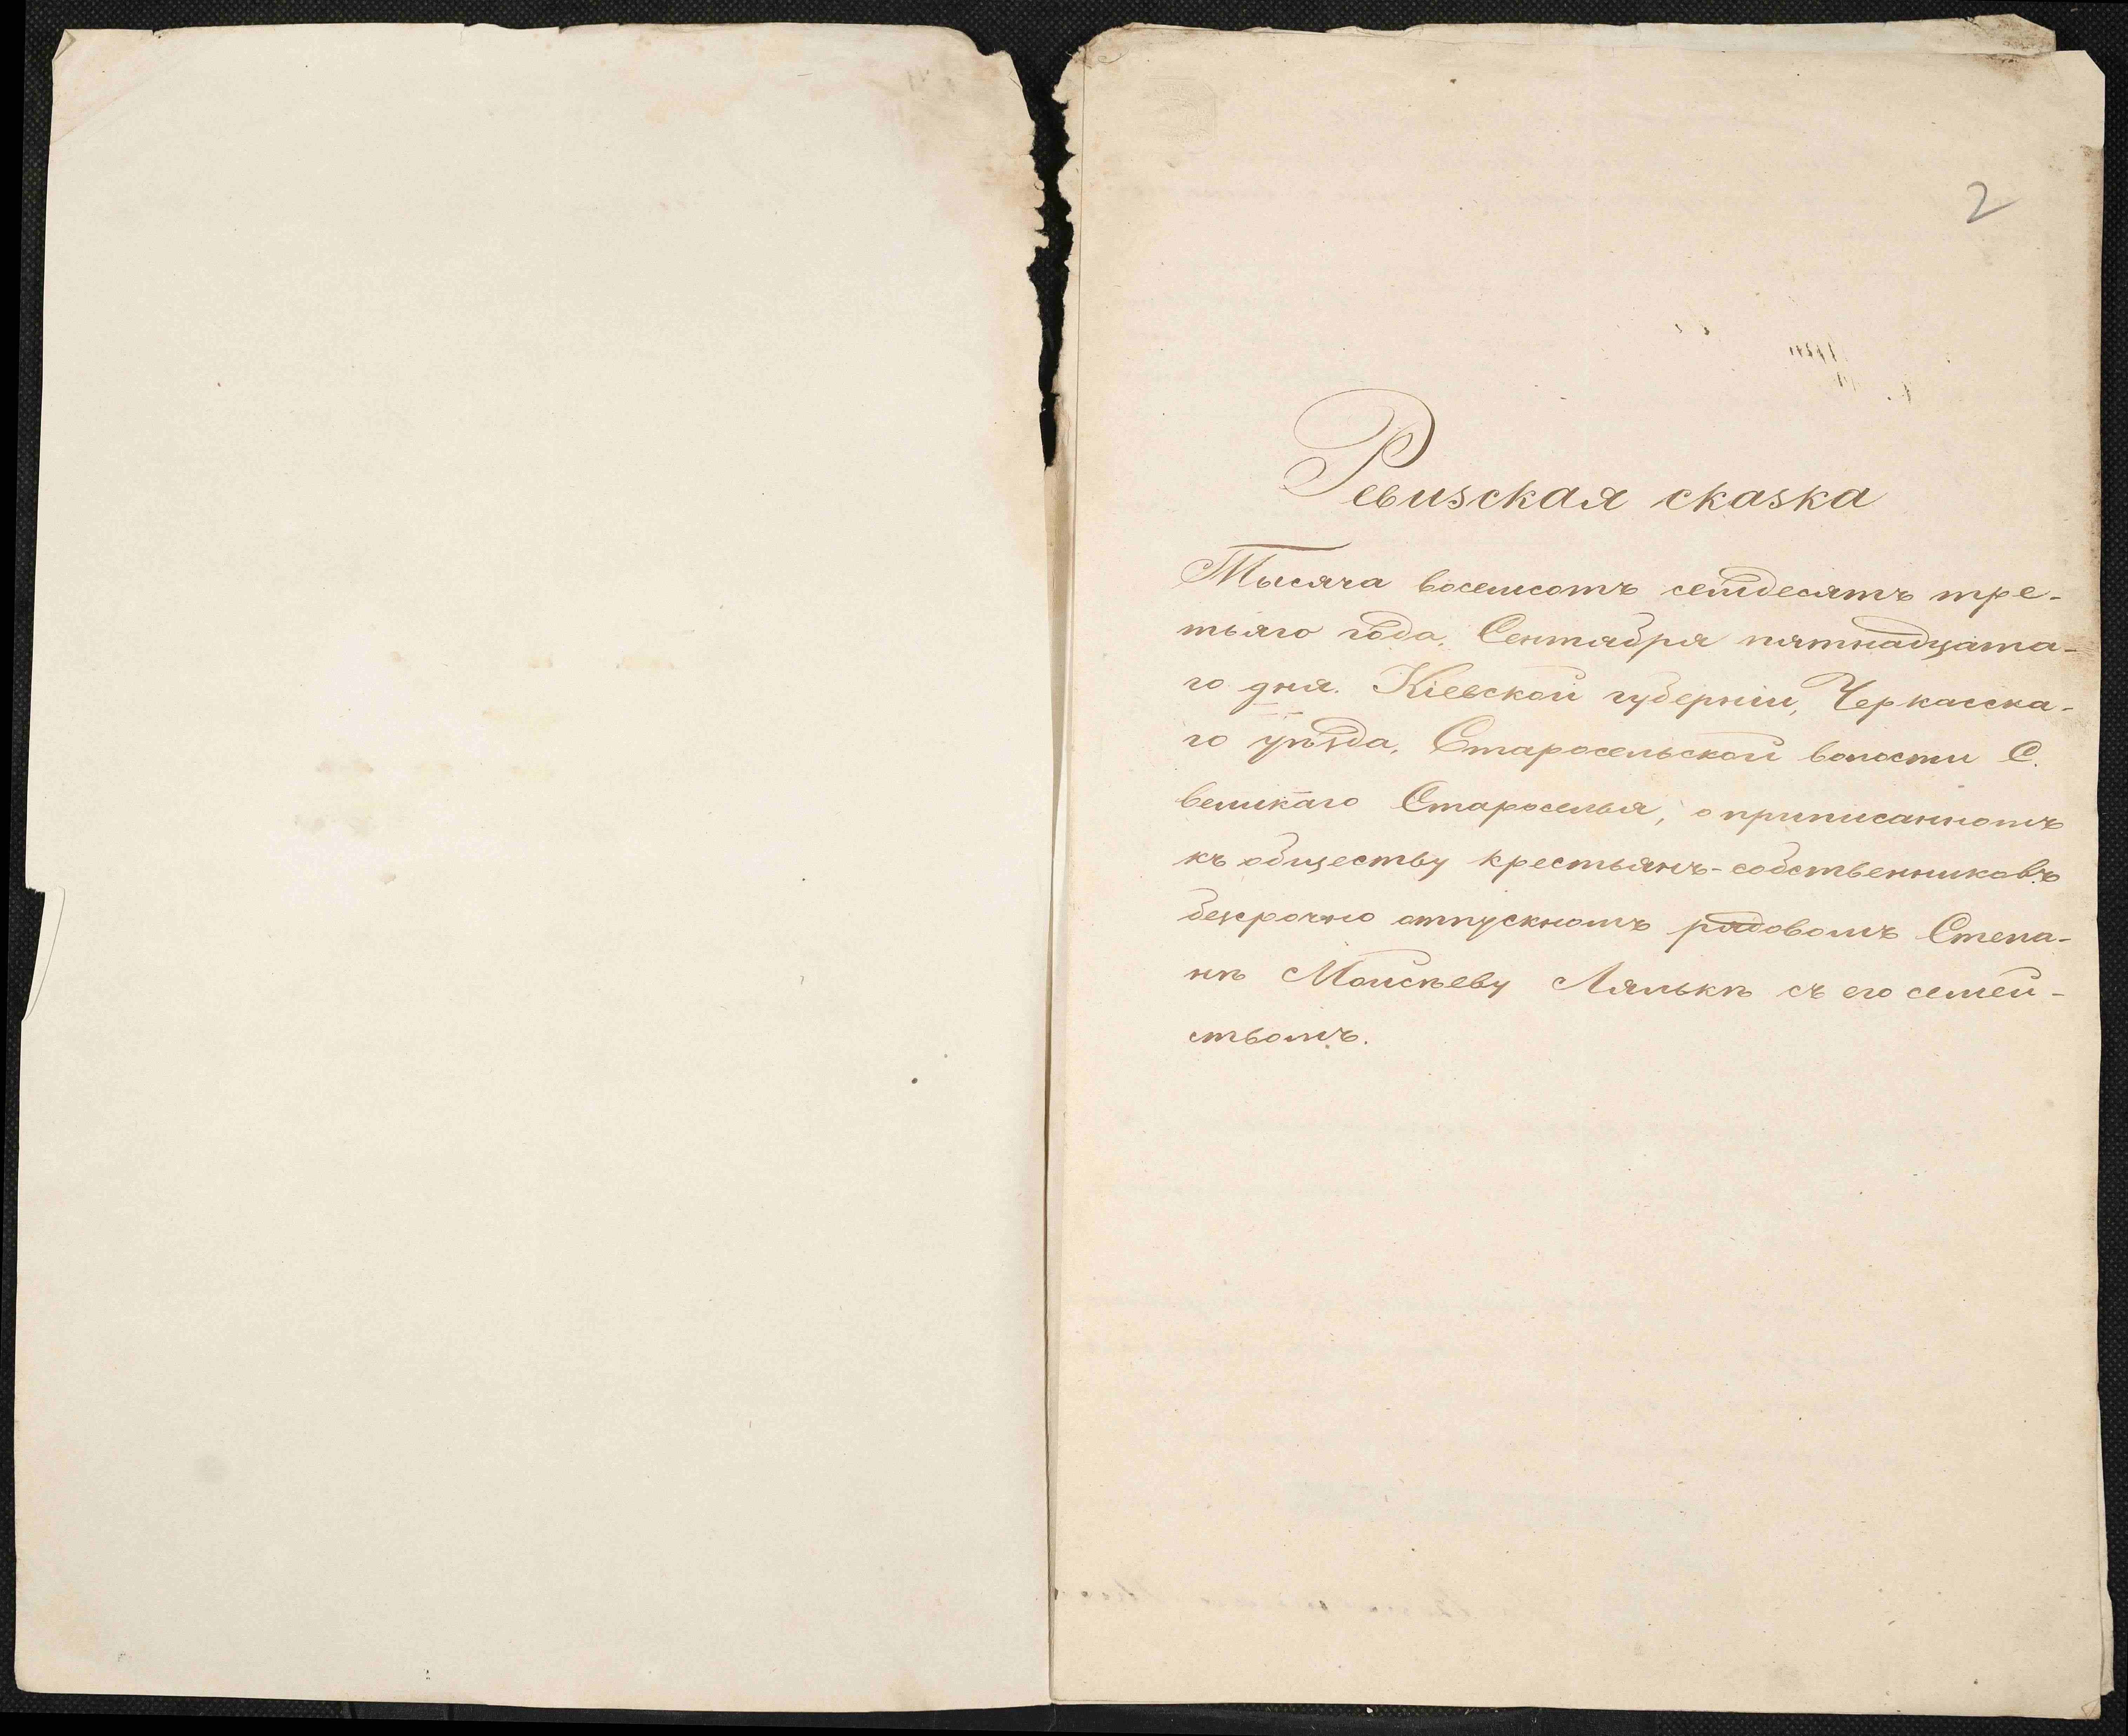 2
Ревизская сказка
Тысяча восемсотъ семдесятъ тре-
тьяго года, Сентября пятнадцата-
го дня. Кіевской губерніи, Черкасска-
го уѣзда, Старосельской волости С.
великаго Староселья, о приписанномъ
къ обществу крестьянъ-собственниковъ
безсрочно отпускномъ рядовомъ Степа-
нѣ Моисѣеву Лялькѣ съ его семей-
ствомъ.